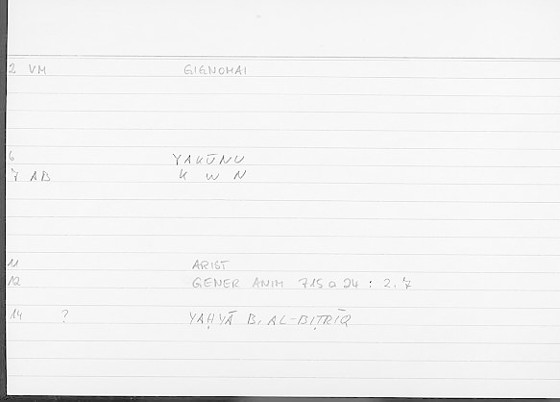 2 VM GIGNOMAI
6 YAKŪNU
7 AB K W N
11 ARIST
12 GENER ANIM 715a24 : 2,7
14 ? YAḤYĀ B. AL-BIṬRĪQ